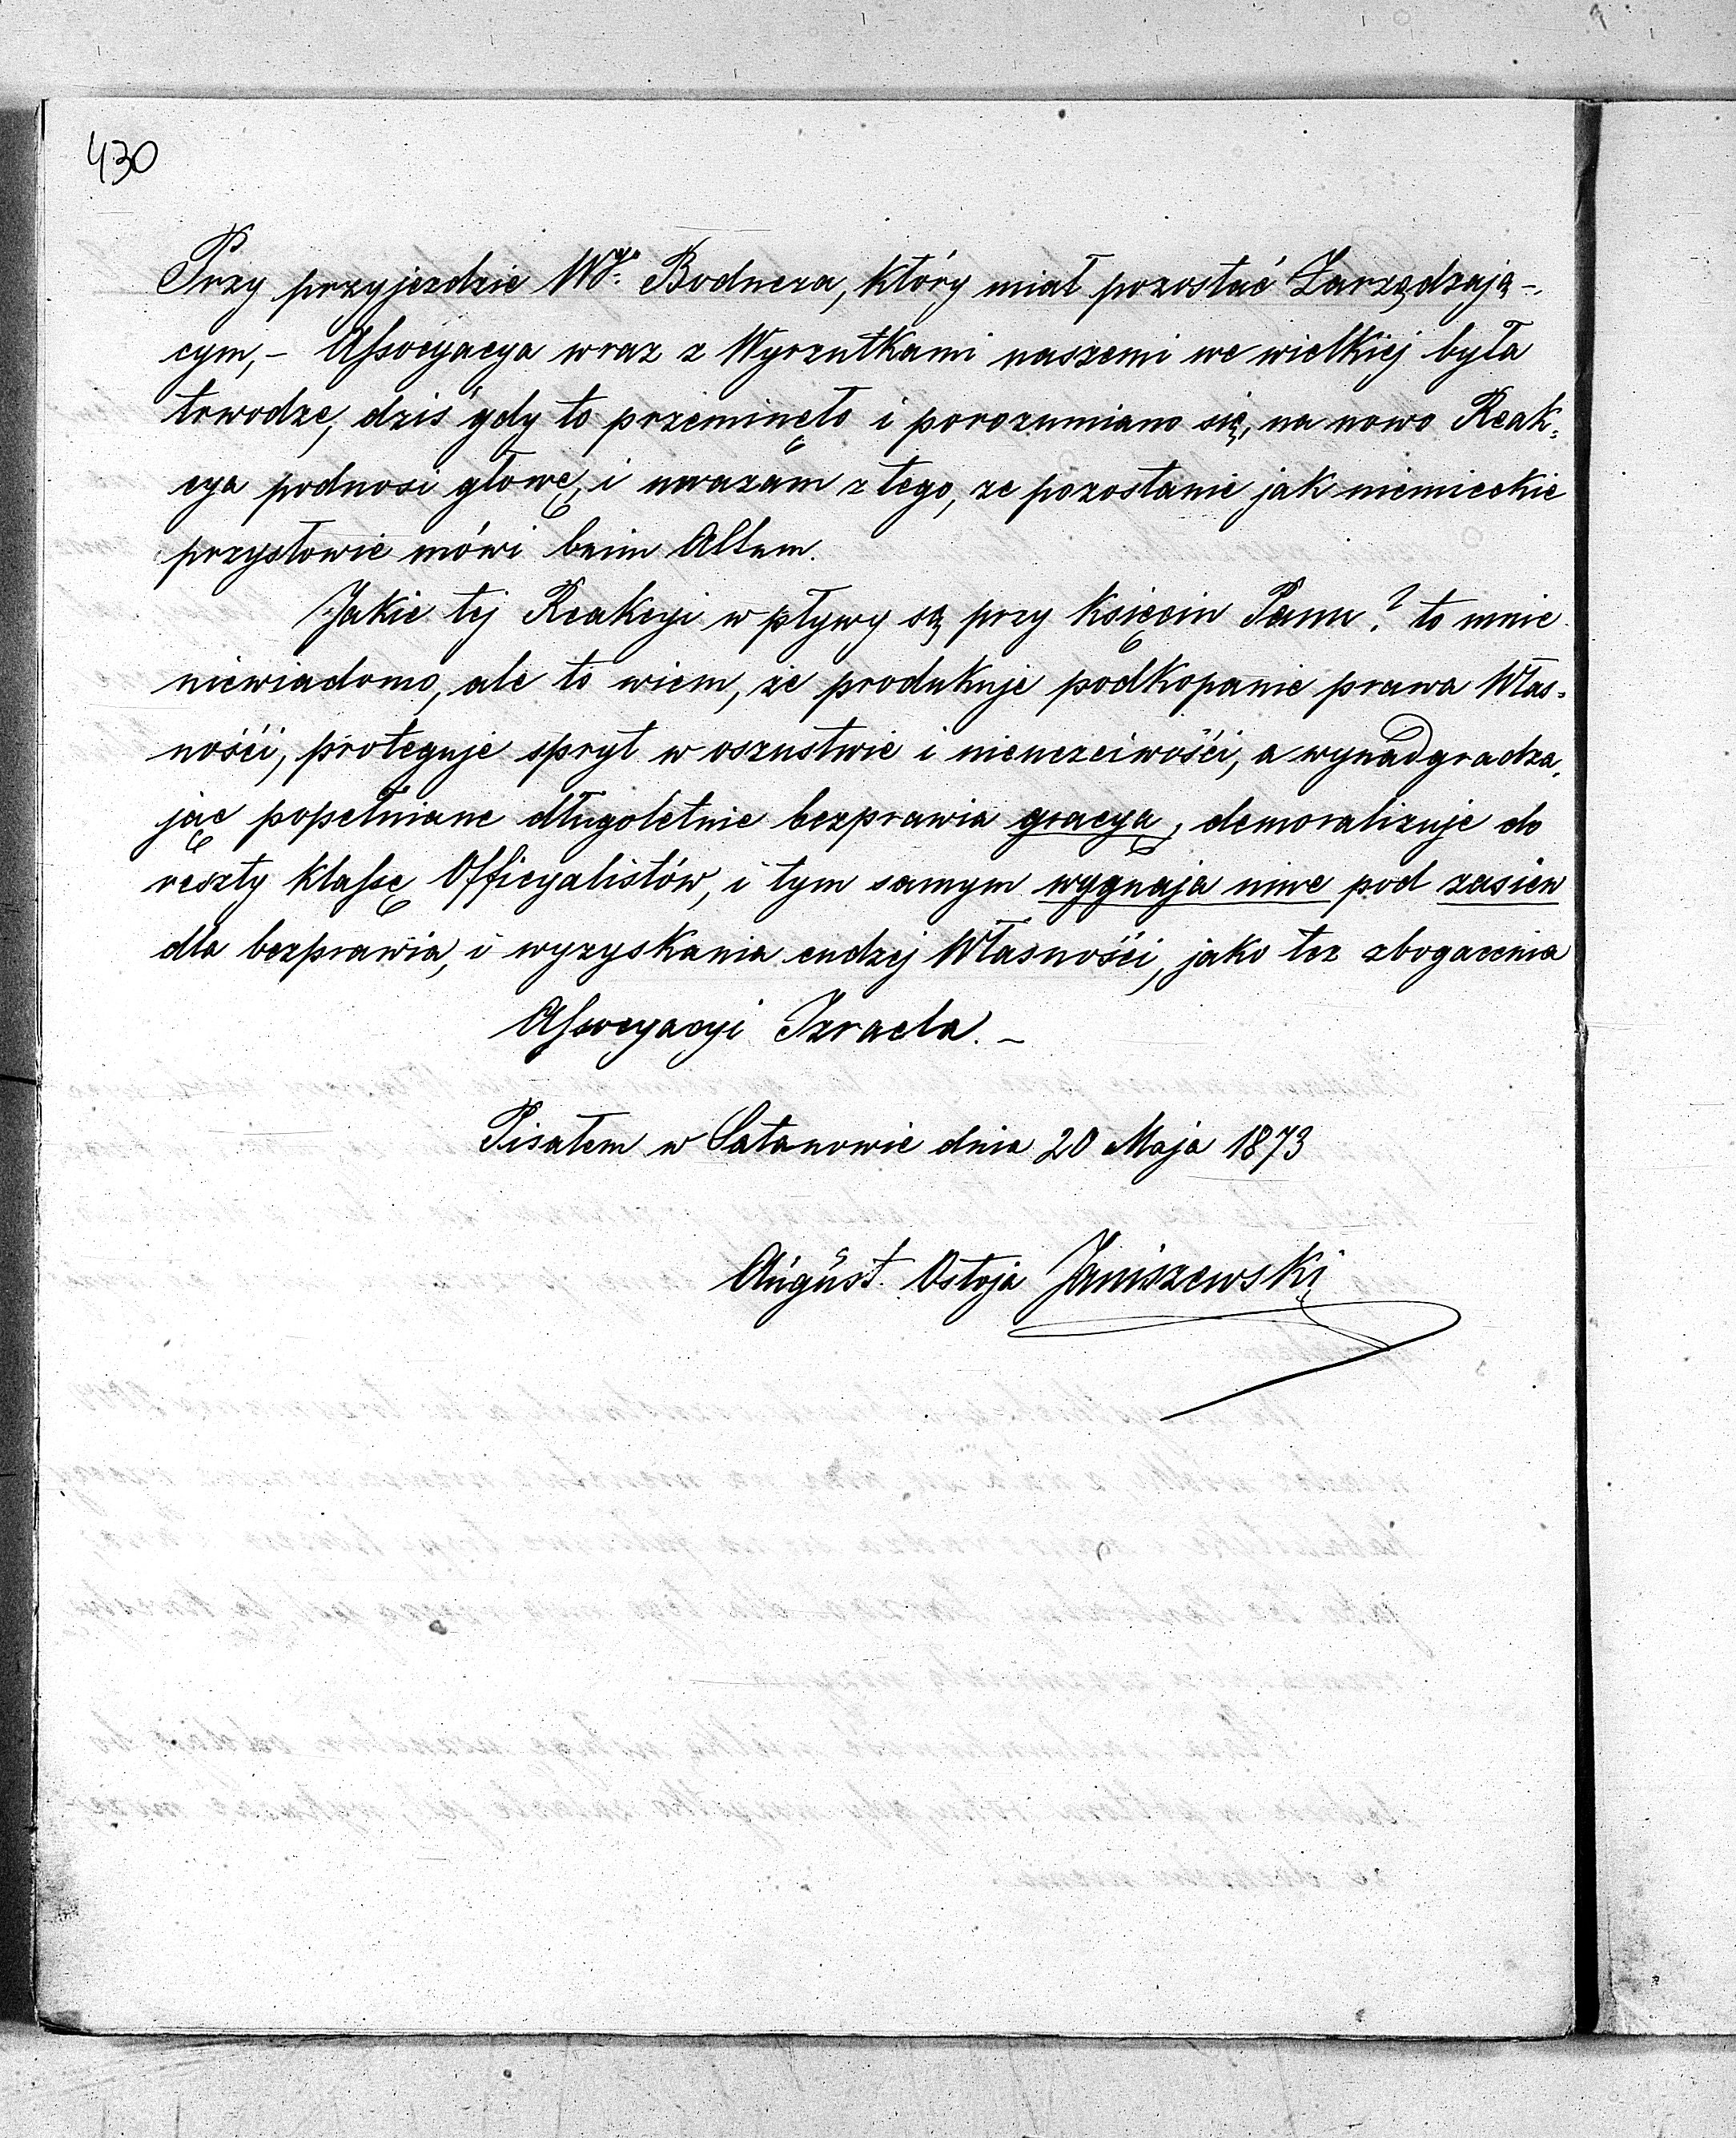 430
Przy przyjezdzie Wgo Bodnera, który miał pozostać Zarządzają-
cym, - Assocyacya wraz z Wyrzutkami naszemi we wielkiej była
trwodze, dziś gdy to przeminęło i porozumiano się, na nowo Reak-
cya podnosi głowę, i uwazam z tego, ze pozostanie jak niemieckie
przysłowie mówi beim Altem.
Jakie tej Reakcyi wpływy są przy Księciu Panu? to mnie
niewiadomo, ale to wiem, że produkuje podkopanie prawa Włas-
ności, proteguje spryt w oszustwie i nieuczciwości, a wynadgradza
jąc popełniane długoletnie bezprawia gracyą, demoralizuje do
reszty klassę Officyalistów, i tym samym wygnaja niwe pod zasiew
dla bezprawia, i wyzyskania cudzej Własności, jako tez zbogacenia
Assocyacyi Izraela. -
Pisałem w Satanowie dnia 20 Maja 1873
August Ostoja Janiszewski